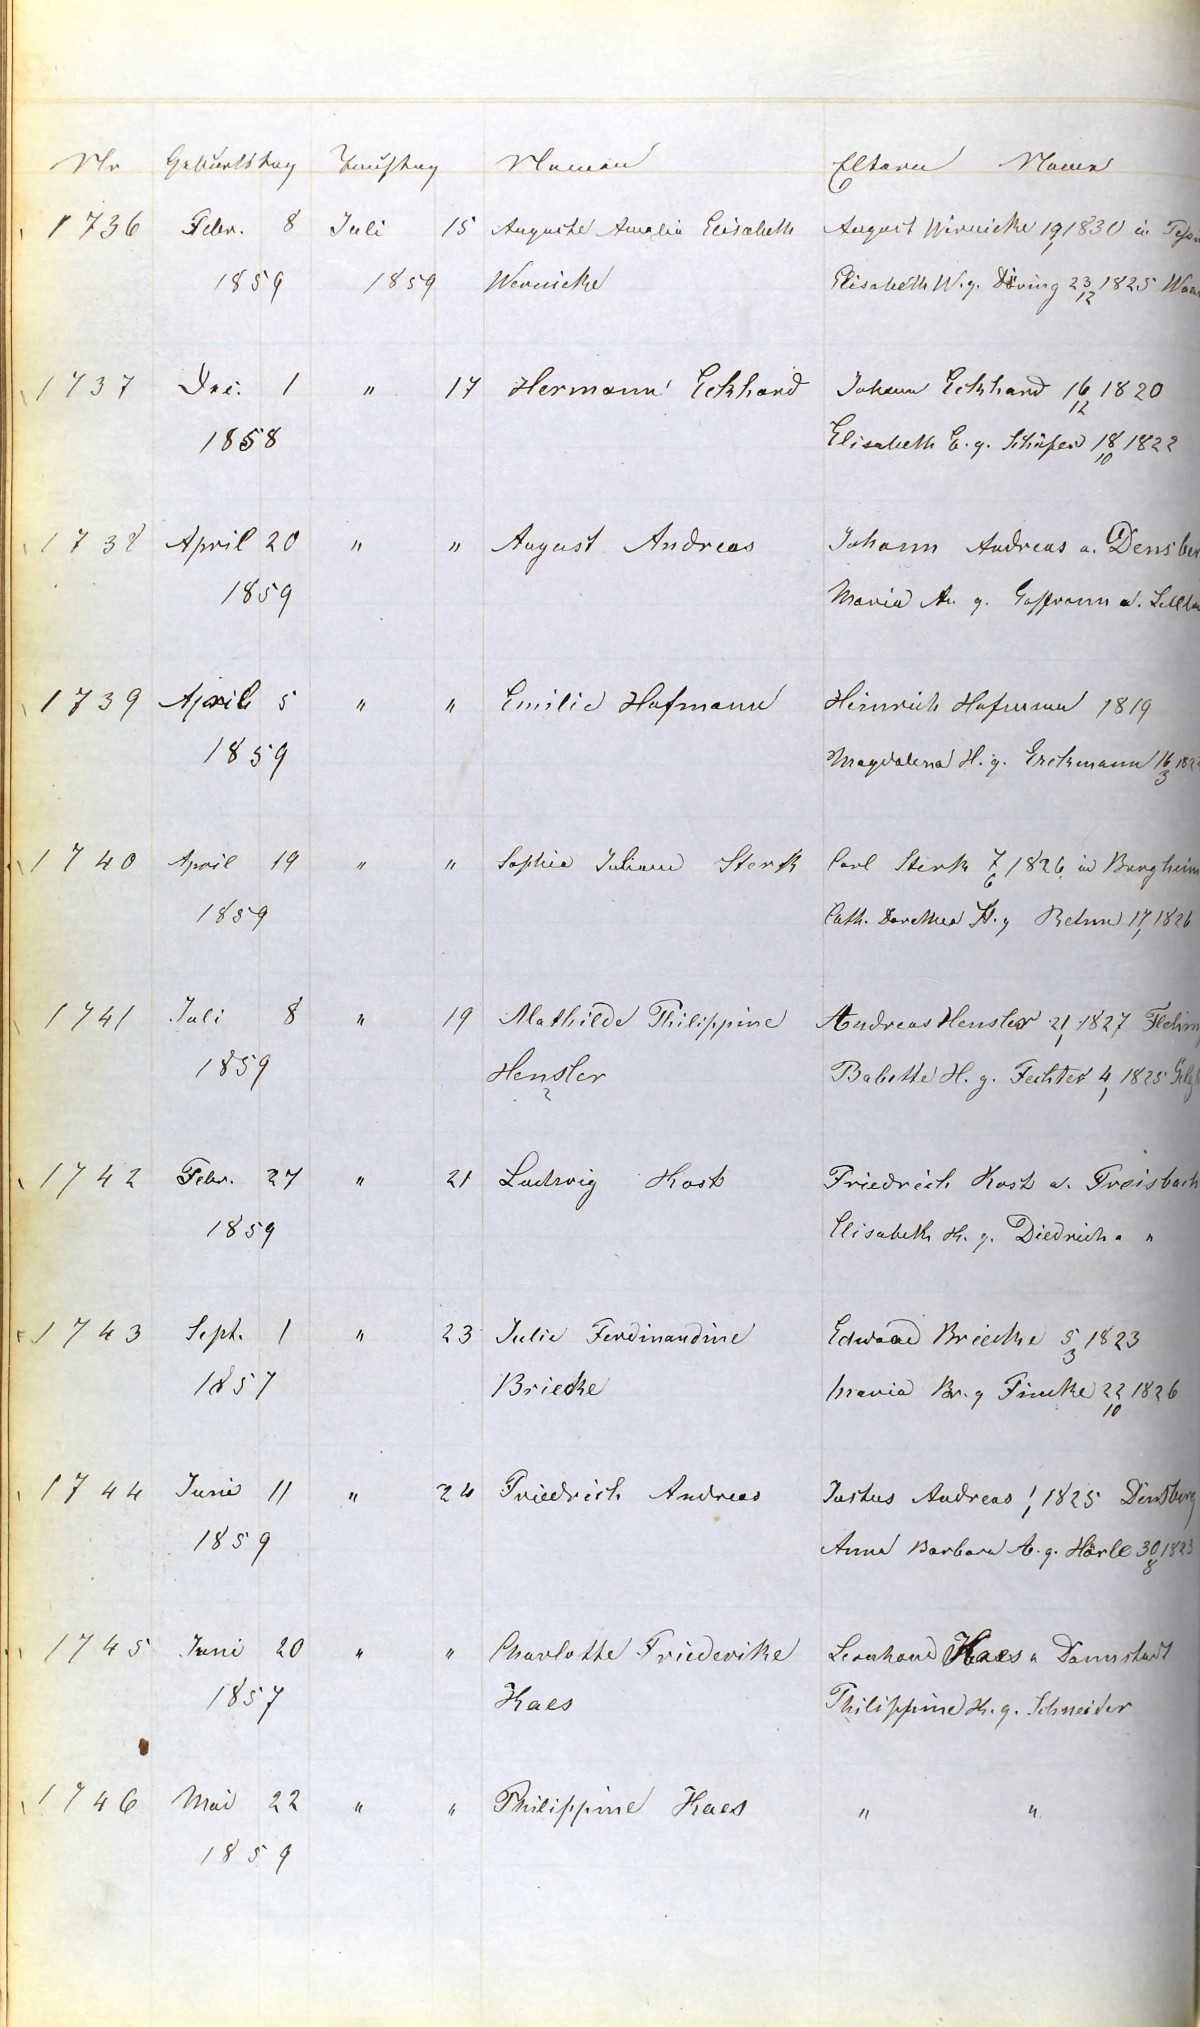 Nr Geburtstag Tauftag Namen Eltern Namen
1736 Febr. 8 Juli 15 Auguste Amalia Elisabeth August Wernicke 19/1 1830 in
1859 1859 Wernicke Elisabeth W. g. Döring 23/12 1825
1737 Dec. 1 " 17 Hermann Eckhard Johann Eckhard 16/12 1820
1858 Elisabeth E. g. Schäfer 18/10 1822
1738 April 20 " " August Andreas Johann Andreas a. Densber
1859 Maria An g. a.
1739 April 5 " " Emilie Hofmann Heinrich Hofmann 1819
1859 Magdalena H. g. Erckmann 16/3
1740 April 19 " " Sophie Juliane Sterk Carl Sterk 7/6 1826 in Bergheim
1859 Cath. Dorothea St. g Behm 17/1 1826
1741 Juli 8 " 19 Mathilde Philippine Andreas Hensler 21/1 1827
1859 Hensler Babette H. g. Fechter 4/1 1825
?
1742 Febr. 27 " 21 Ludwig Kost Friedrich Kost a. Freisbach
1859 Elisabeth K. g. Diedrich a "
1743 Sept. 1 " 23 Julie Ferdinandine Edward Briecke 5/3 1823
1857 Briecke Maria Br. g Fincke 22/10 1826
1744 Junie 11 " 24 Friedrich Andreas Justus Andreas 1/1 1825 Densberg
1859 Anna Barbara A. g. Hörle 30/8 1823
1745 Juni 20 " " Charlotte Friederike Leonhard Kaes a Darmstadt
1857 Kaes Philippine K. g. Schneider
1746 Mai 22 " " Philippine Kaes " "
1859